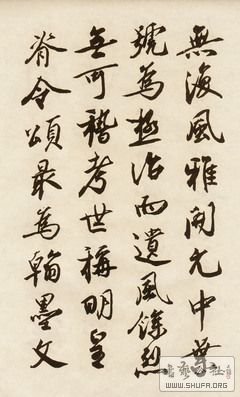 無復風雅開元中葉
號為極治而遺風餘烈
無可稽考世稱明皇
脊令頌最為翰墨文
WWW.SHUFA.ORG